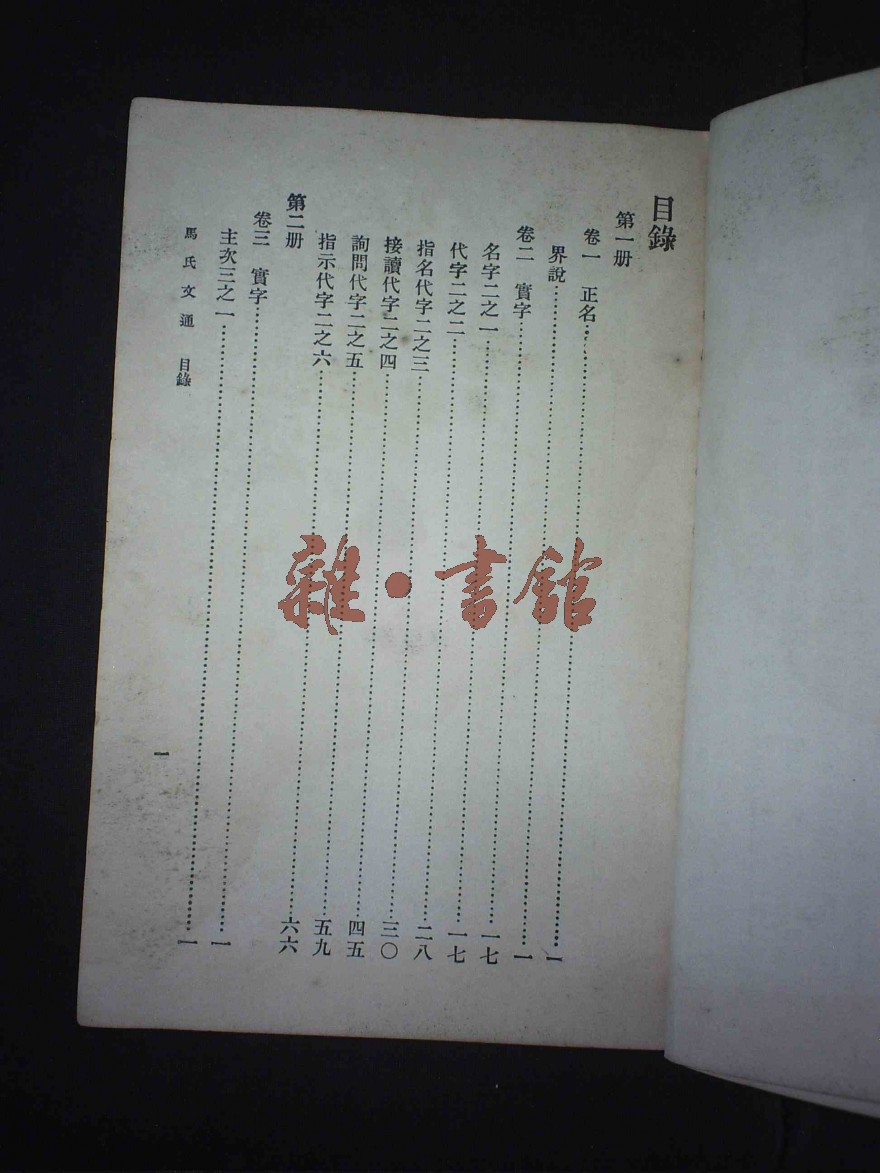 目錄
第一册
卷一 正名……一
界說……一
卷二 實字……一七
名字二之一……一七
代字二之二……二八
指名代字二之三……三〇
接讀代字二之四……四五
詢問代字二之五……五九
指示代字二之六……六六
第二册
卷三 實字……一
主次三之一……一
馬氏文通 目錄 一
雜·書館